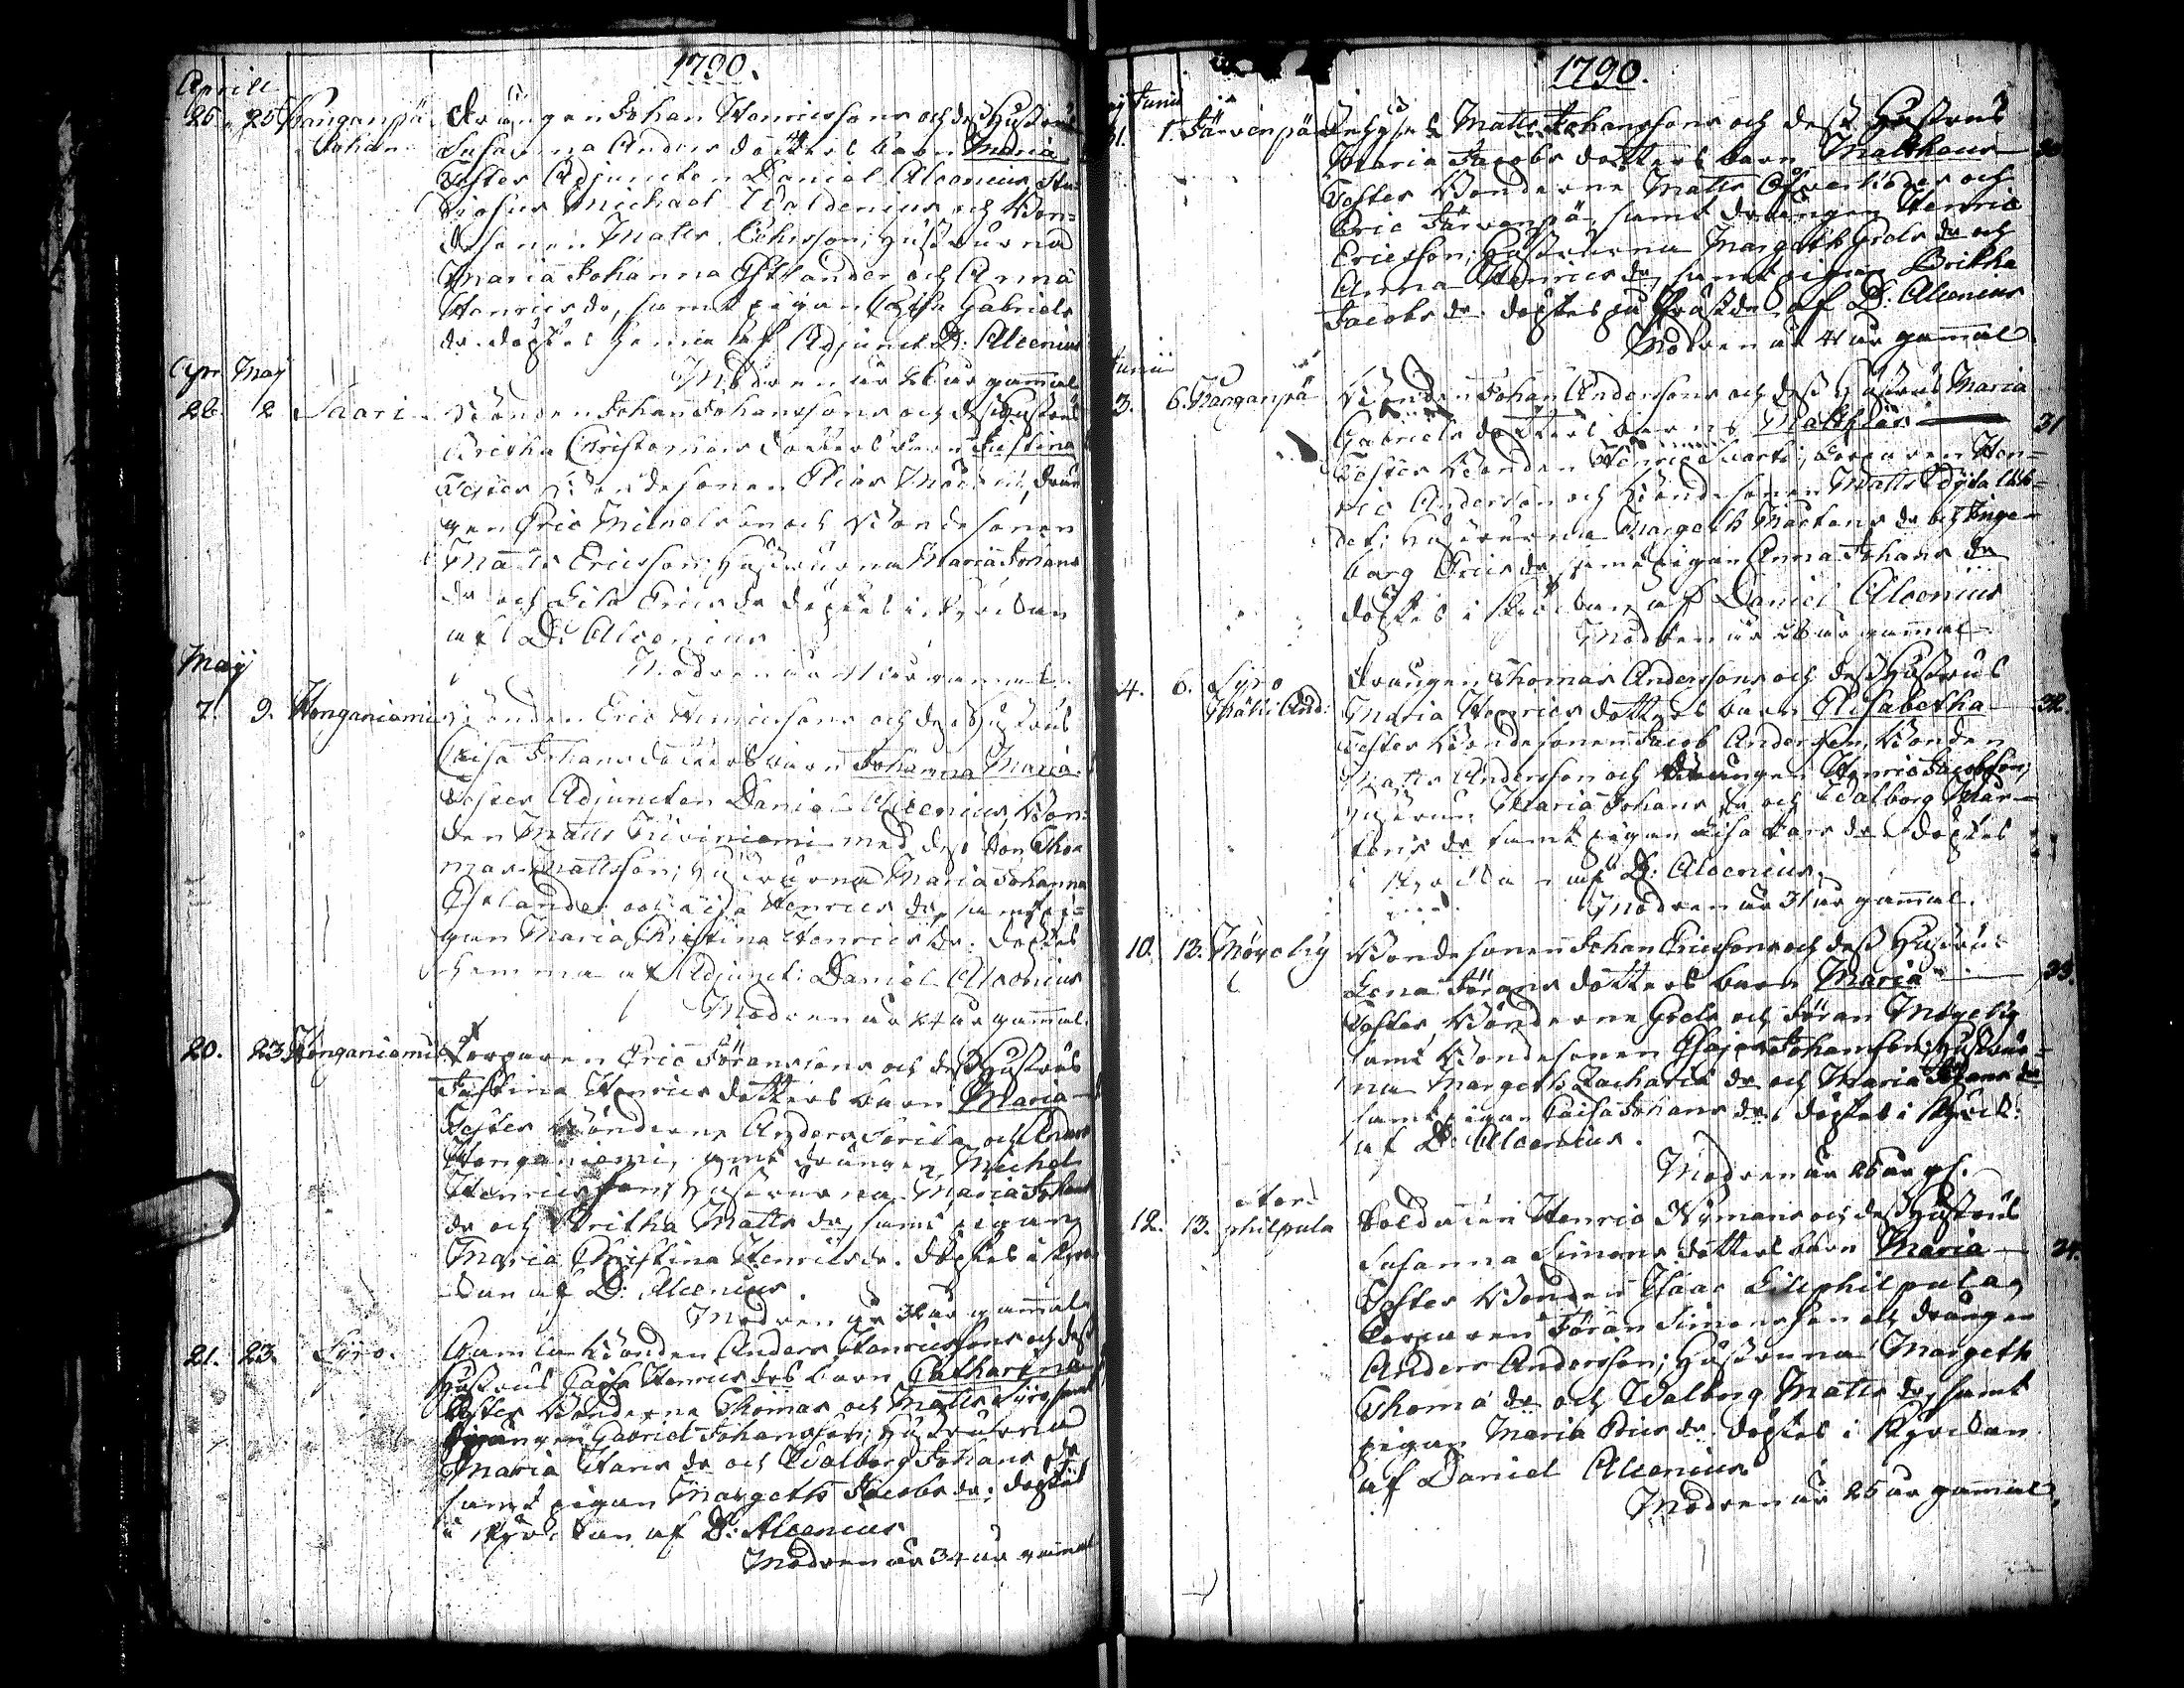 1790.
Aprill
25. 25. Kanganpä Drängen Johan Henricssons och dess Hustrus
Johan Susanna Anders dotters barn Maria
Testes Adjuncten Daniel Alcenius, Stu-
diosus Michael Waldenius och Bon-
desonen Matts Ericsson; Hustrurna
Maria Johanna Estlander och Anna
Henricsdr, samt pigan Gabriels
dr. döptes hemma af Adjunct. D: Alcenius
Modren är 26 år gammal
Apr May
26. 2 Saari Bonden Johan Johanssons och dess Hustrus
Britha Christophers dotters barn Justina
Testes Bondesonen Elias drän
gen Eric Michelsson och Bondesonen
Matts Ericsson; Hustrurna Maria Johans
dr och Lisa Erics dr döptes i kyrckan
af D: Alcenius
Modren är 41 år gammal.
May
7. 9. Honganiemi Bonden Eric Henricssons och dess Hustrus
Caisa Johans dotters barn Johanna Maria.
Testes Adjuncten Daniel Alcenius, Bon-
den Matts Niviniemi med dess Son Tho
mas Mattsson; Hustrurna Maria Johanna
Estlander och Lisa Henrics dr, samt pi-
gan Maria Christina Henrics dr. döptes
hemma af Adjunct: Daniel Alcenius
Modren är 24 år gammal.
20. 23. Honganiemi Torparen Eric Göranssons och dess Hustrus
Justina Henrics dotters barn Maria
Testes Bönderne Anders Sorila och Anders
Honganiemi, samt drängen Michel
Henricsson; Hustrurna Maria Johans
dr och Britha Matts dr, samt pigan
Maria Christina Henricsdr. döptes i Kyrc
kan af D: Alcenius
Modren är 32 år gammal.
21. 23. Syro. Gamla Bonden Anders Henricssons och dess
Hustrus Caisa Henrics drs barn Catharina
Testes Bönderne Thomas och Matts Syro samt
drängen Gabriel Johansson; Hustrurna
Maria Hans dr och Walborg Johans dr
samt pigan Margeth Jacobs dr: döptes
i Kyrckan af D: Alcenius
Modren är 34 år gammal
1790.
Maj Junii
31. 1. Järvenpä Matts Johanssons och dess Hustrus
Maria Jacobs dotters barn Matthæus 30
Testes Bönderne Matts och
Eric Järvenpä, samt drängen Henric
Ericsson; Hustrurna Margeth Greels dr och
Anna Henrics dr, samt pigan Britha
Jacobs dr. döptes på af D: Alcenius
Modren är 41 år gammal
Junii
3. 6. Kanganpä Bonden Johan Anderssons och dess Hustrus Maria
Gabriels dotters barn Matthias 31
Testes Bonden Henric Svarts, Hen-
ric Andersson och Bondesonen Matts
det; Hustrurna Margeth Mårtens dr och Inge-
borg Erics dr, samt pigan Anna Johans dr
döptes i Kyrckan af Daniel Alcenius
Modren är 26 år gammal.
4. 6. Syro Drängen Thomas Anderssons och dess Hustrus
Maria Henrics dotters barn Elisabetha 32.
Testes Bondesonen Jacob Andersson, Bonden
Matts Andersson och drängen Henric Jacobsson;
Hustrun Maria Johans dr och Walborg Mår-
tens dr samt pigan Lisa Hans dr. döptes
i Kyrckan af D: Alcenius.
Modren är 31 år gammal.
10. 13. Möycky Bondesonen Johan Ericssons och dess Hustrus
Lena Görans dotters barn Maria 33.
Testes Bönderne Greels och Göran Möycky
samt Bondesonen Esajas Johansson; Hustrur-
na Margeth Zachariæ dr och Maria Johans dr
samt pigan Caisa Johans dr. döptes i Kyrck:
af D: Alcenius.
Modren är 26 år gl.
Stor
12. 13. philpula Soldaten Henric Nymans och dess Hustrus
Susanna Simons dotters barn Maria 34.
Testes Bonden Isaac Lillphilpula,
Torparen Göran Simonsson och drängen
Anders Andersson; Hustrurna Margeth
Thomæ dr och Walborg Matts dr, samt
pigan Maria Erics dr. döptes i Kyrckan
af Daniel Alcenius
Modren är 25 år gammal.